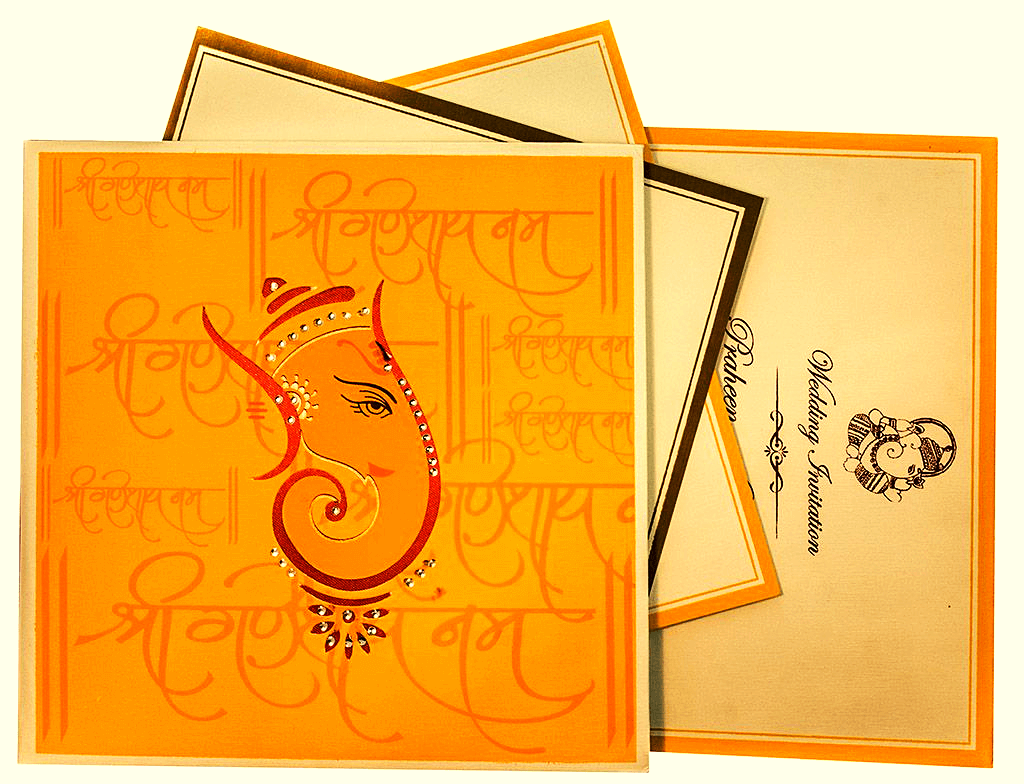 श्री गणेशाय नम
श्री गणेशाय नम
श्री गणे
श्री गणेशाय नम
श्री गणेशाय नम
श्री गणेशाय नम
गणेशाय
श्री गणेशाय नम
Wedding Invitation
Praheen